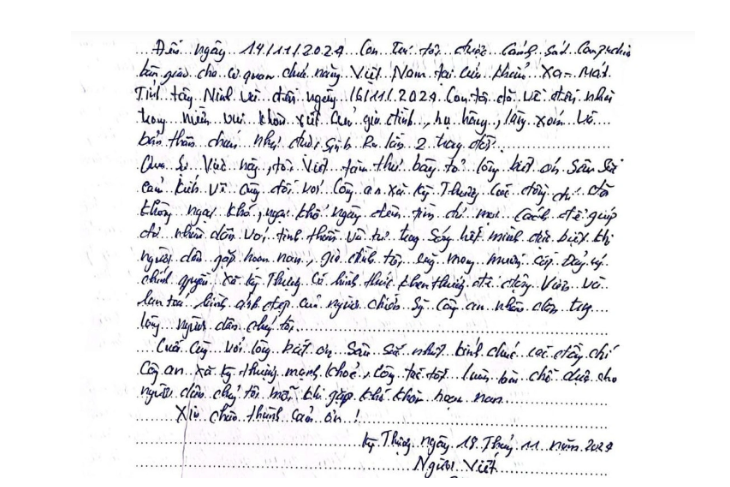 Đến ngày 14/11/2024 Con trai tôi được Cảnh sát Campuchia
bàn giao cho cơ quan chức năng Việt Nam tại cửa khẩu Xa-Mát
Tỉnh Tây Ninh và đến ngày 16/11/2024 Con tôi đã về đến nhà
trong niềm vui khôn xiết của gia đình, họ hàng, làng xóm Và
bản thân cháu như được sinh ra lần 2 trong đời.
Qua sự việc này, tôi viết tâm thư bày tỏ lòng biết ơn Sâu Sắc
đối với Công an xã Kỳ Thượng các đồng chí đã
không ngại khó, ngại khổ ngày đêm tìm đủ mọi Cách để giúp
đỡ nhân dân với tinh thần Và tư trong Sáng hết mình đặc biệt khi
người dân gặp hoạn nạn, gia đình tôi mong muốn cấp Đảng uỷ
chính quyền xã Kỳ Thượng Có hình thức khen thưởng để động Viên và
lan toả hình ảnh đẹp của người chiến Sỹ Công an nhân dân trong
lòng người dân chúng tôi.
Cuối cùng với lòng biết ơn Sâu Sắc nhất kính chúc các đồng chí
Công an xã Kỳ Thượng mạnh khoẻ, Công tác tốt luôn là chỗ dựa cho
người dân chúng tôi mỗi khi gặp khó khăn hoạn nạn.
Xin chân thành Cảm ơn!
Kỳ Thượng ngày 18 Tháng 11 năm 2024
Người Viết